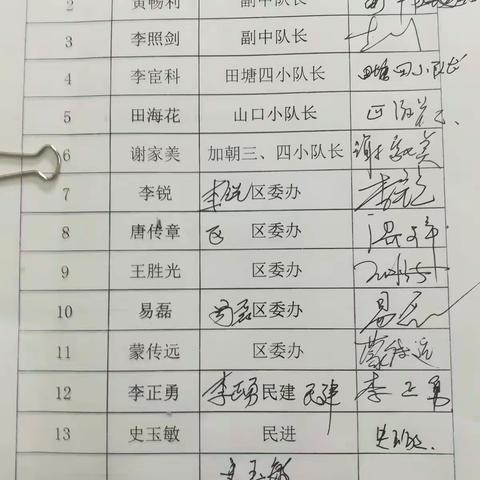 2 黄畅利 副中队长
3 李照剑 副中队长
4 李宦科 田塘四小队长 田塘四小队长
5 田海花 山口小队长
6 谢家美 加朝三、四小队长 谢家美
7 李锐 李锐 区委办 李锐
8 唐传章 区 区委办
9 王胜光 区委办 王胜光
10 易磊 区委办 易磊
11 蒙传远 区委办 蒙传远
12 李正勇 李正勇 民建 民建 李正勇
13 史玉敏 民进
史玉敏